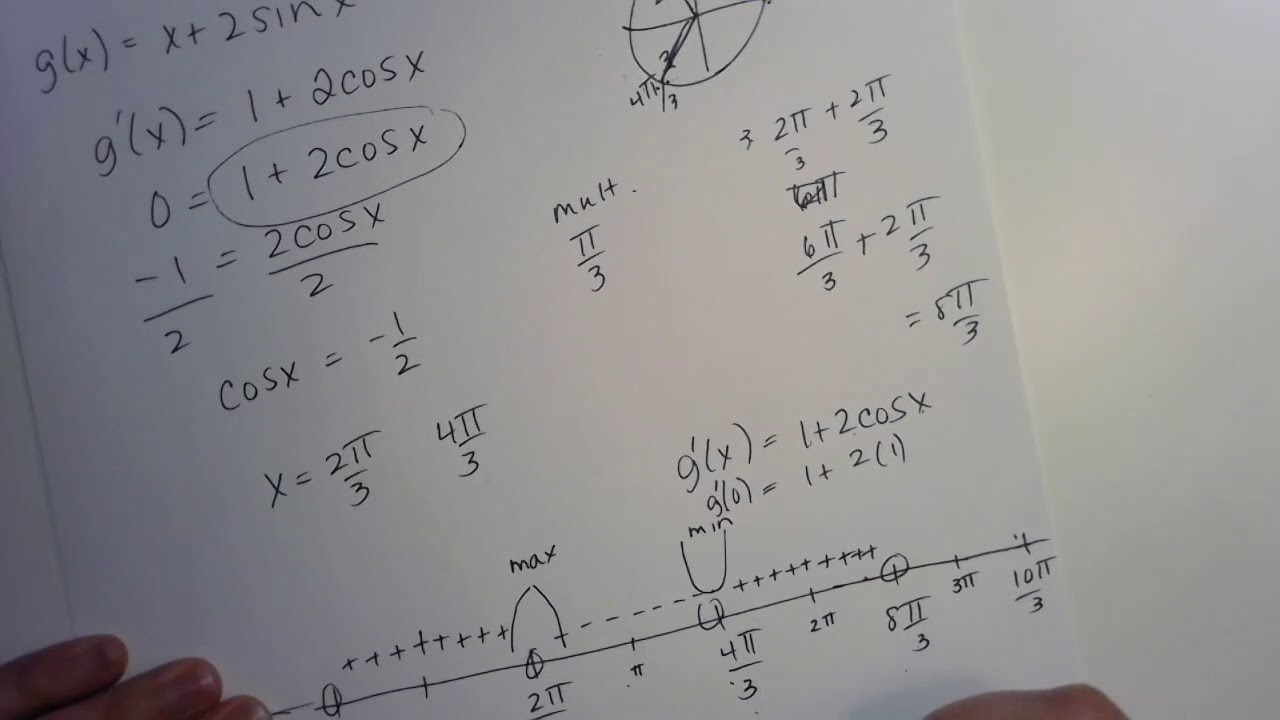 g(x) = x + 2 sin x
g'(x) = 1 + 2cosx
0 = 1 + 2cosx
-1/2 = 2cosx/2
cosx = -1/2
x = 2π/3 4π/3
4π/3
mult.
π/3
2π/3 + 2π/3
6π/3 + 2π/3
= 8π/3
g'(x) = 1+2cosx
g'(0) = 1 + 2(1)
max
min
+++++++ ------ ++++++++
2π π 4π/3 2π 8π/3 3π 10π/3